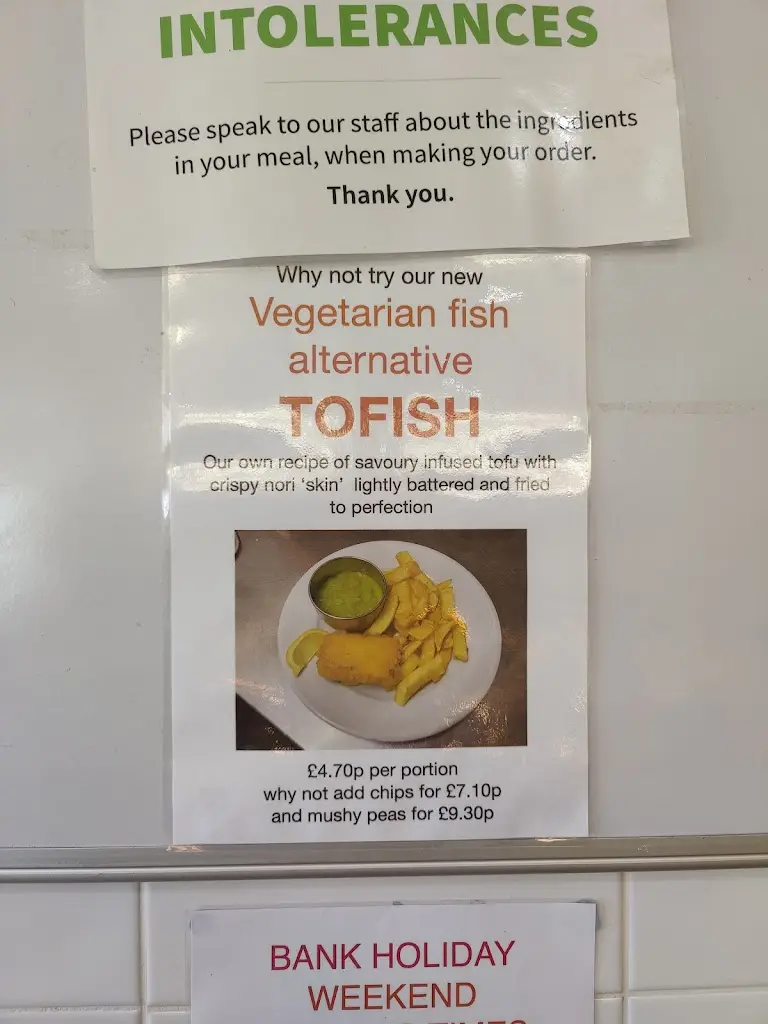 INTOLERANCES
Please speak to our staff about the ingredients
in your meal, when making your order.
Thank you.
Why not try our new
Vegetarian fish
alternative
TOFISH
Our own recipe of savoury infused tofu with
crispy nori ‘skin’ lightly battered and fried
to perfection
£4.70p per portion
why not add chips for £7.10p
and mushy peas for £9.30p
BANK HOLIDAY
WEEKEND